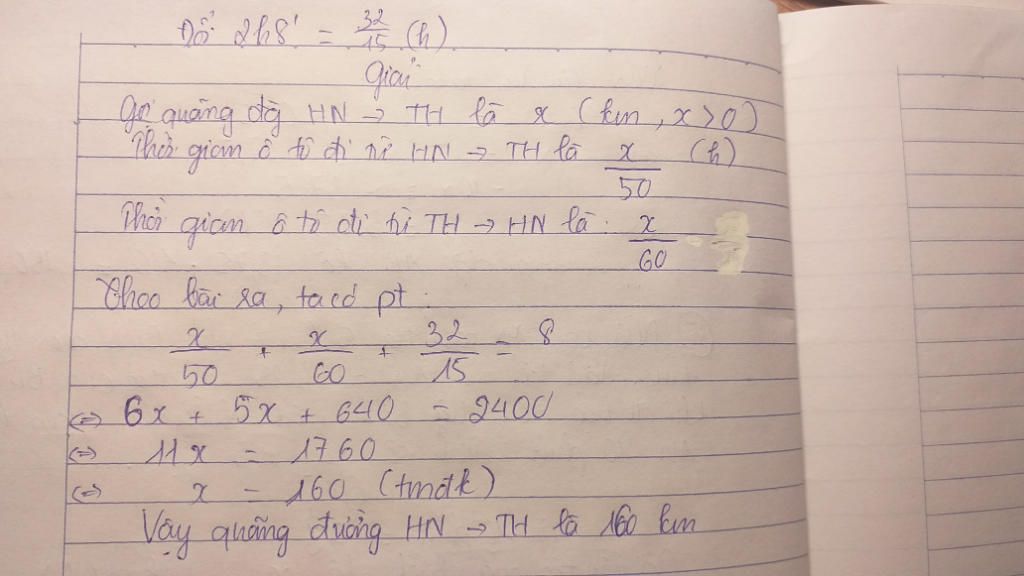 Đổi 2h8' = 32/15 (h)
Giải
Gọi quãng đg HN → TH là x (km, x > 0)
Thời gian ô tô đi từ HN → TH là x/50 (h)
Thời gian ô tô đi từ TH → HN là : x/60
Theo bài ra, ta có pt :
x/50 + x/60 + 32/15 = 8
<=> 6x + 5x + 640 = 2400
<=> 11x = 1760
<=> x = 160 (tmđk)
Vậy quãng đường HN → TH là 160 km